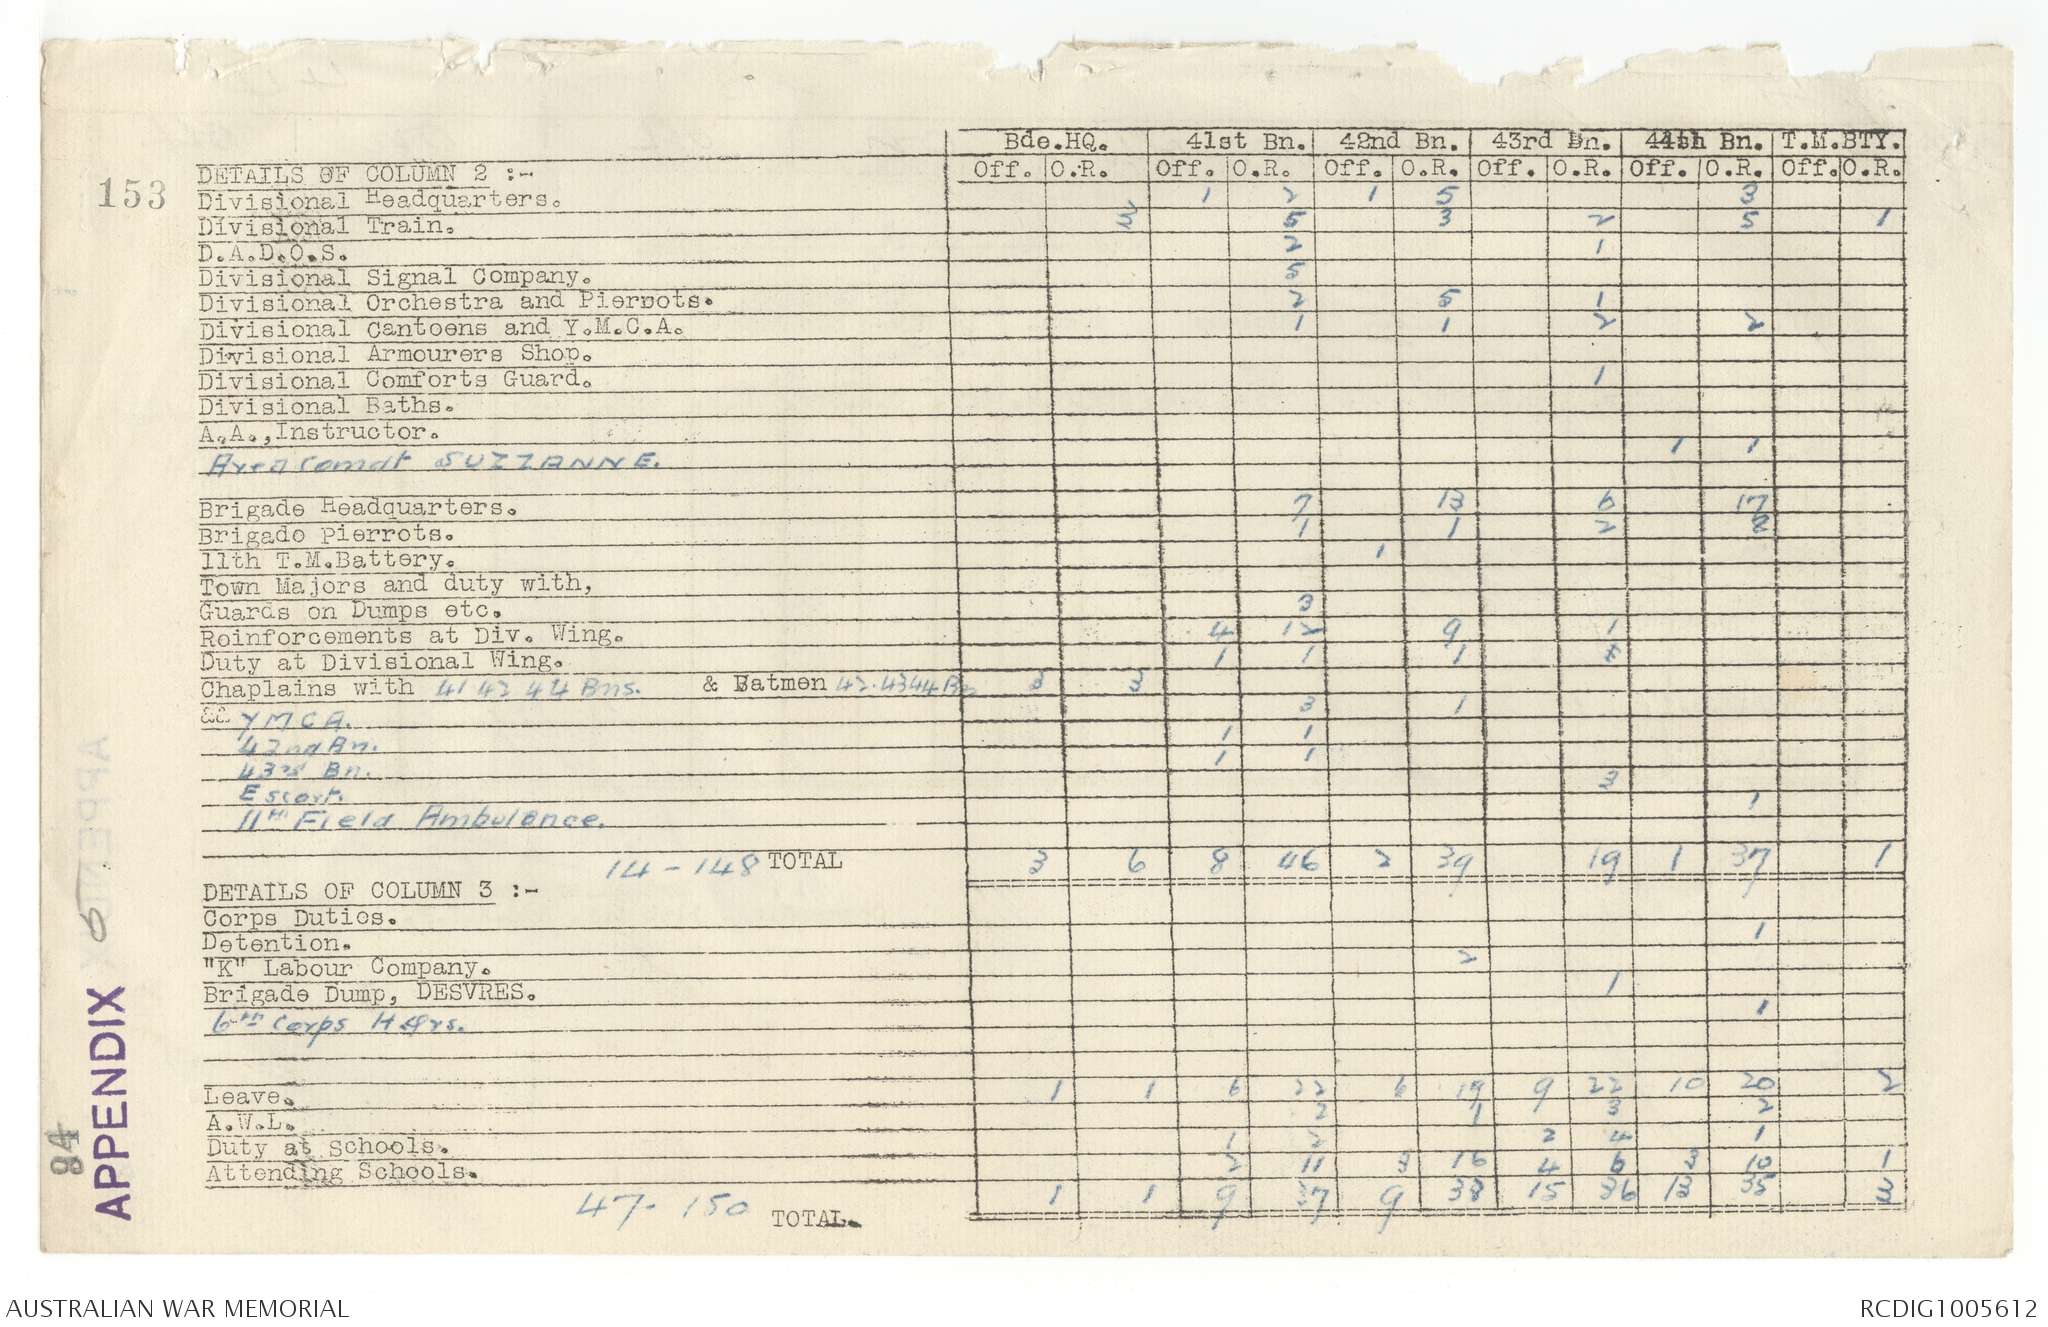 Bde.HQ. 41st Bn. 42nd Bn. 43rd Bn. 44th Bn. T.M.BTY.
DETAILS OF COLUMN 2 :- Off. O.R. Off. O.R. Off. O.R. Off. O.R. Off. O.R. Off. O.R.
153
Divisional Headquarters. 1 2 1 5 3
Divisional Train. 5 3 2 5 1
D.A.D.O.S. 2 1
Divisional Signal Company. 5
Divisional Orchestra and Pierrots. 2 5 1
Divisional Cantoens and Y.M.C.A. 1 1 2 2
Divisional Armourers Shop.
Divisional Comforts Guard. 1
Divisional Baths.
A.A.,Instructor.
Area Comdt SUZZANNE. 1 1
Brigade Headquarters. 7 13 6 17
Brigado Pierrots. 1 1 2 8
11th T.M.Battery. 1
Town Majors and duty with,
Guards on Dumps etc. 3
Reinforcements at Div. Wing. 4 12 9 1
Duty at Divisional Wing. 1 1 1
Chaplains with 41 42 44 Bns. & Batmen 42.43 44 Bn 3 3
&& YMCA. 3 1
42nd Bn. 1 1
43rd Bn. 1 1
Escort. 3
11th Field Ambulance. 1
14-148 TOTAL 3 6 8 46 2 39 19 1 37 1
DETAILS OF COLUMN 3 :-
Corps Duties.
Detention. 1
"K" Labour Company. 2
Brigade Dump, DESVRES. 1
6th Corps Hqrs. 1
Leave. 1 1 6 22 6 19 9 22 10 20 2
A.W.L. 2 1 3 2
Duty at Schools. 1 2 2 4 1
Attending Schools. 2 11 3 16 4 6 3 10 1
47-150 TOTAL. 1 1 9 37 9 38 15 36 13 35 3
84
APPENDIX 9
AUSTRALIAN WAR MEMORIAL
RCDIG1005612